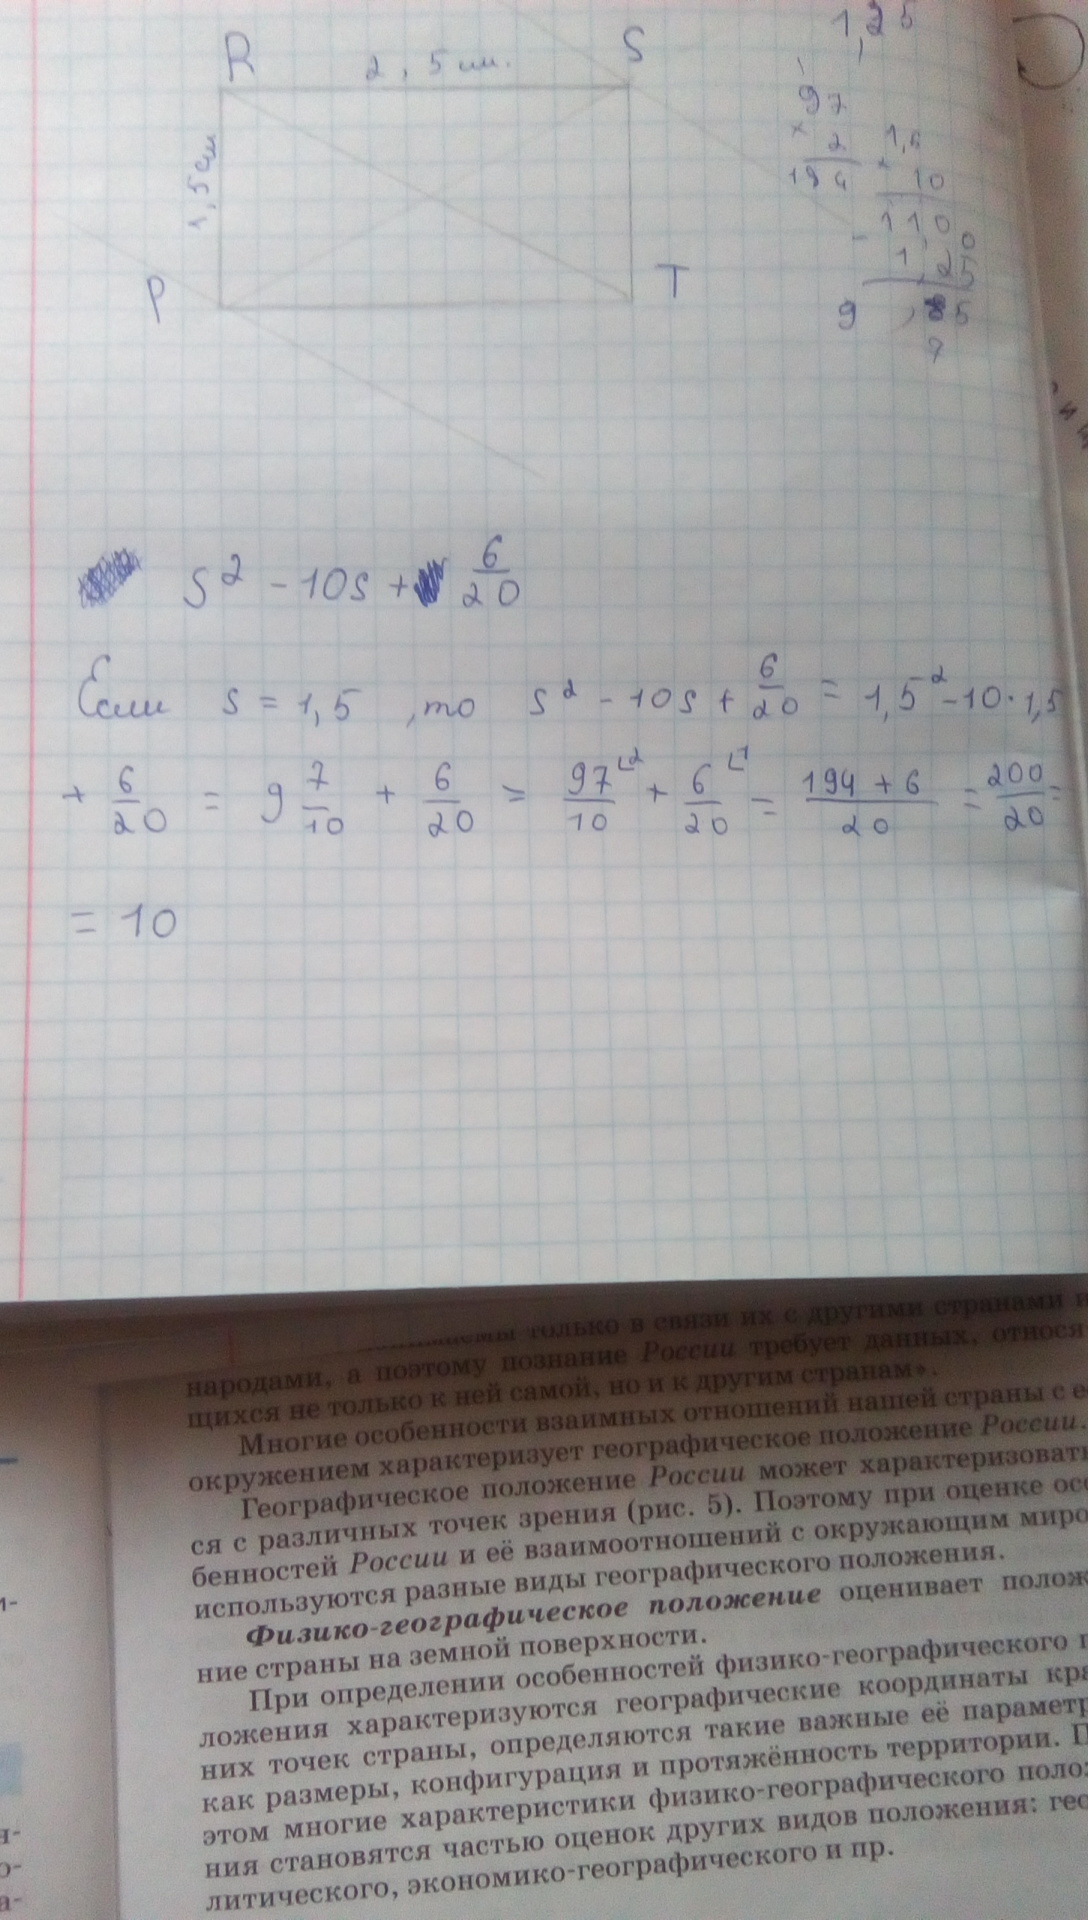 R 2,5 см. S
1,5 см
P T
1,25
97
× 2
194
1,5
× 10
110
- 1,25
9,75
7
s² - 10s + 6/20
Если s = 1,5 , то s² - 10s + 6/20 = 1,5² - 10 · 1,5
+ 6/20 = 9 7/10 + 6/20 = 97/10 + 6/20 = (194 + 6)/20 = 200/20 =
= 10
только в связи их с другими странами и
народами, а поэтому познание России требует данных, относя
щихся не только к ней самой, но и к другим странам».
Многие особенности взаимных отношений нашей страны с е
окружением характеризует географическое положение России.
Географическое положение России может характеризовать
ся с различных точек зрения (рис. 5). Поэтому при оценке осо
бенностей России и её взаимоотношений с окружающим миро
используются разные виды географического положения.
Физико-географическое положение оценивает полож
ние страны на земной поверхности.
При определении особенностей физико-географического п
ложения характеризуются географические координаты кра
них точек страны, определяются такие важные её параметр
как размеры, конфигурация и протяжённость территории. П
этом многие характеристики физико-географического поло
ния становятся частью оценок других видов положения: гео
литического, экономико-географического и пр.